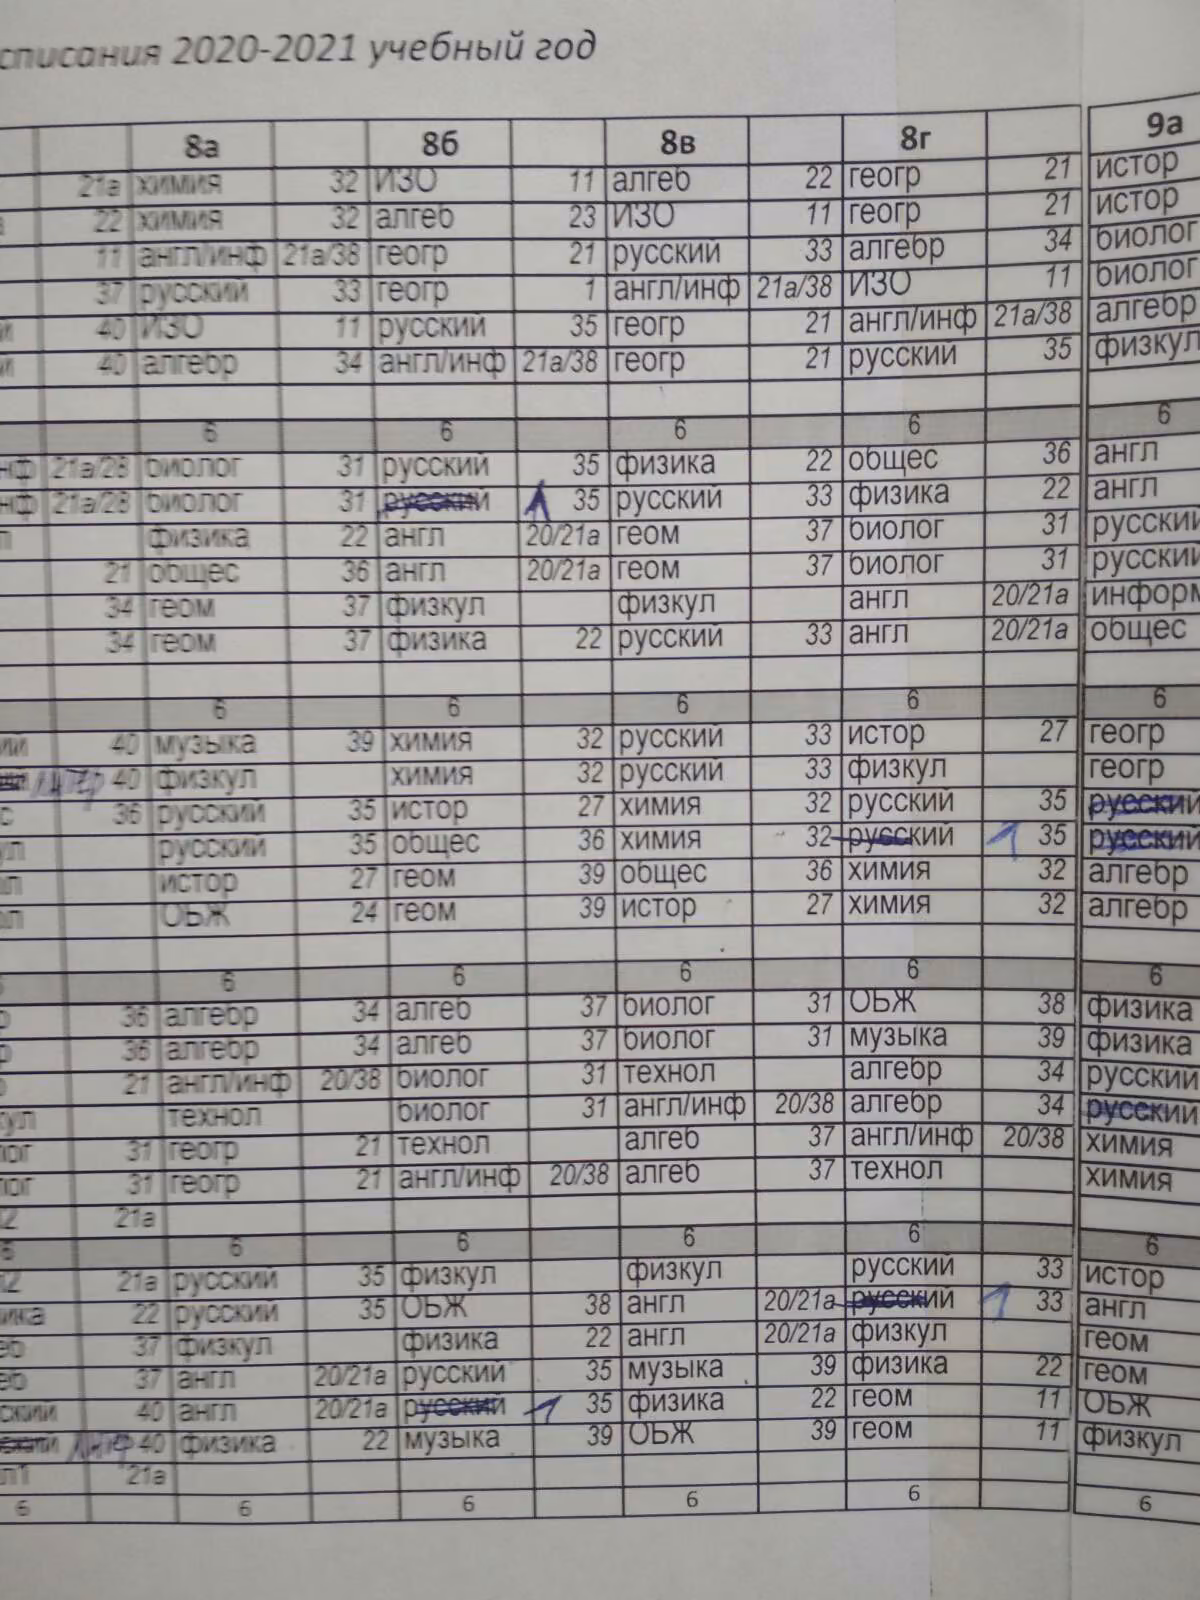 списания 2020-2021 учебный год
8а 8б 8в 8г 9а
21а химия 32 ИЗО 11 алгеб 22 геогр 21 истор
22 химия 32 алгеб 23 ИЗО 11 геогр 21 истор
11 англ/инф 21а/38 геогр 21 русский 33 алгебр 34 биолог
37 русский 33 геогр 1 англ/инф 21а/38 ИЗО 11 биолог
40 ИЗО 11 русский 35 геогр 21 англ/инф 21а/38 алгебр
40 алгебр 34 англ/инф 21а/38 геогр 21 русский 35 физкул
6 6 6 6 6
нф 21а/28 биолог 31 русский 35 физика 22 общес 36 англ
нф 21а/28 биолог 31 русский 1 35 русский 33 физика 22 англ
физика 22 англ 20/21а геом 37 биолог 31 русский
21 общес 36 англ 20/21а геом 37 биолог 31 русский
34 геом 37 физкул физкул англ 20/21а информ
34 геом 37 физика 22 русский 33 англ 20/21а общес
6 6 6 6 6
ий 40 музыка 39 химия 32 русский 33 истор 27 геогр
40 физкул химия 32 русский 33 физкул геогр
с 36 русский 35 истор 27 химия 32 русский 35 русский
ул русский 35 общес 36 химия 32 русский 1 35 русский
ол истор 27 геом 39 общес 36 химия 32 алгебр
ол ОБЖ 24 геом 39 истор 27 химия 32 алгебр
6 6 6 6 6
р 36 алгебр 34 алгеб 37 биолог 31 ОБЖ 38 физика
р 36 алгебр 34 алгеб 37 биолог 31 музыка 39 физика
21 англ/инф 20/38 биолог 31 технол алгебр 34 русский
кул технол биолог 31 англ/инф 20/38 алгебр 34 русский
лог 31 геогр 21 технол алгеб 37 англ/инф 20/38 химия
лог 31 геогр 21 англ/инф 20/38 алгеб 37 технол химия
21а
6 6 6 6 6 6
21а русский 35 физкул физкул русский 33 истор
ика 22 русский 35 ОБЖ 38 англ 20/21а русский 1 33 англ
еб 37 физкул физика 22 англ 20/21а физкул геом
еб 37 англ 20/21а русский 35 музыка 39 физика 22 геом
ский 40 англ 20/21а русский 1 35 физика 22 геом 11 ОБЖ
40 физика 22 музыка 39 ОБЖ 39 геом 11 физкул
л1 21а
6 6 6 6 6 6